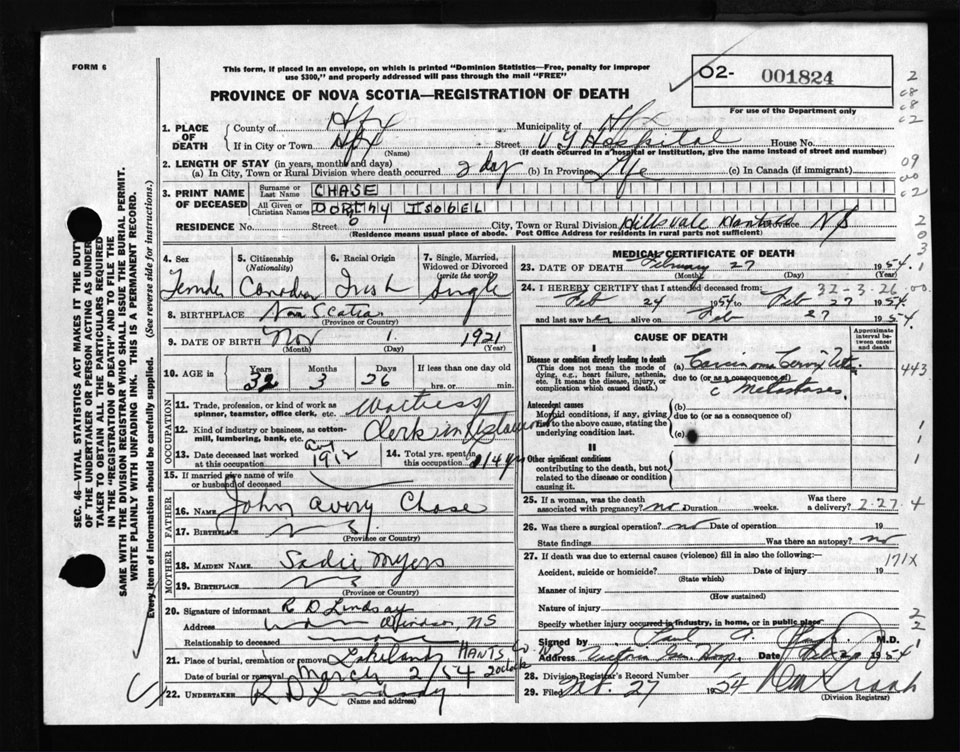 FORM 6
This form, if placed in an envelope, on which is printed "Dominion Statistics—Free, penalty for improper
use $300," and properly addressed will pass through the mail "FREE"
O2- 001824
For use of the Department only
PROVINCE OF NOVA SCOTIA—REGISTRATION OF DEATH
SEC. 46—VITAL STATISTICS ACT MAKES IT THE DUTY
OF THE UNDERTAKER OR PERSON ACTING AS UNDER-
TAKER TO OBTAIN ALL THE PARTICULARS REQUIRED
IN THE "REGISTRATION OF DEATH" AND TO FILE THE
SAME WITH THE DIVISION REGISTRAR WHO SHALL ISSUE THE BURIAL PERMIT.
WRITE PLAINLY WITH UNFADING INK. THIS IS A PERMANENT RECORD.
Every item of information should be carefully supplied. (See reverse side for instructions.)
1. PLACE OF DEATH { County of Hfx Municipality of
If in City or Town Hfx Street V G Hospital House No.
(Name) (If death occurred in a hospital or institution, give the name instead of street and number)
2. LENGTH OF STAY (in years, months and days)
(a) In City, Town or Rural Division where death occurred 2 day (b) In Province Life (c) In Canada (if immigrant)
3. PRINT NAME OF DECEASED { Surname or Last Name CHASE
All Given or Christian Names DOROTHY ISOBEL
RESIDENCE No. Street City, Town or Rural Division Hillsvale Hants Co Province N S
(Residence means usual place of abode. Post Office Address for residents in rural parts not sufficient)
4. Sex Female
5. Citizenship (Nationality) Canadian
6. Racial Origin Irish
7. Single, Married, Widowed or Divorced (write the word) Single
8. BIRTHPLACE Nova Scotia
(Province or Country)
9. DATE OF BIRTH Nov 1. 1921
(Month) (Day) (Year)
10. AGE in Years 32 Months 3 Days 26 If less than one day hrs. or min.
OCCUPATION
11. Trade, profession, or kind of work as spinner, teamster, office clerk, etc. Waitress
12. Kind of industry or business, as cotton-mill, lumbering, bank, etc. Clerk in
13. Date deceased last worked at this occupation 14. Total yrs. spent in this occupation
15. If married give name of wife or husband of deceased
FATHER
16. Name John Avery Chase
17. Birthplace N S.
(Province or Country)
MOTHER
18. MAIDEN NAME Sadie Myers
19. BIRTHPLACE N S
(Province or Country)
20. Signature of informant R D Lindsay
Address Windsor, NS
Relationship to deceased
21. Place of burial, cremation or removal Lakelands HANTS Co. N.S.
Date of burial or removal March 2/54 2 oclock
22. UNDERTAKER R D Lindsay
(Name and address)
MEDICAL CERTIFICATE OF DEATH
23. DATE OF DEATH February 27 1954
(Month) (Day)
24. I HEREBY CERTIFY that I attended deceased from: 32-3-26
Feb 24 1954 to Feb 27 1954.
and last saw her alive on Feb 27 1954.
CAUSE OF DEATH
Approximate interval between onset and death
I
Disease or condition directly leading to death
(This does not mean the mode of dying, e.g., heart failure, asthenia, etc. It means the disease, injury, or complication which caused death.)
(a) Carcinoma Cervix Uteri
due to (or as a consequence of) c Metastases.
Antecedent causes
Morbid conditions, if any, giving rise to the above cause, stating the underlying condition last.
(b)
due to (or as a consequence of)
(c)
II
Other significant conditions
contributing to the death, but not related to the disease or condition causing it.
25. If a woman, was the death associated with pregnancy? no Duration weeks. Was there a delivery?
26. Was there a surgical operation? no Date of operation 19
State findings Was there an autopsy? no
27. If death was due to external causes (violence) fill in also the following:—
171X
Accident, suicide or homicide? Date of injury 19
(State which)
Manner of injury
(How sustained)
Nature of injury
Specify whether injury occurred in industry, in home, or in public place
Signed by Paul A. M.D.
Address Victoria Gen. Hosp. Date 1954
28. Division Registrar's Record Number
29. Filed 27 1954
(Division Registrar)